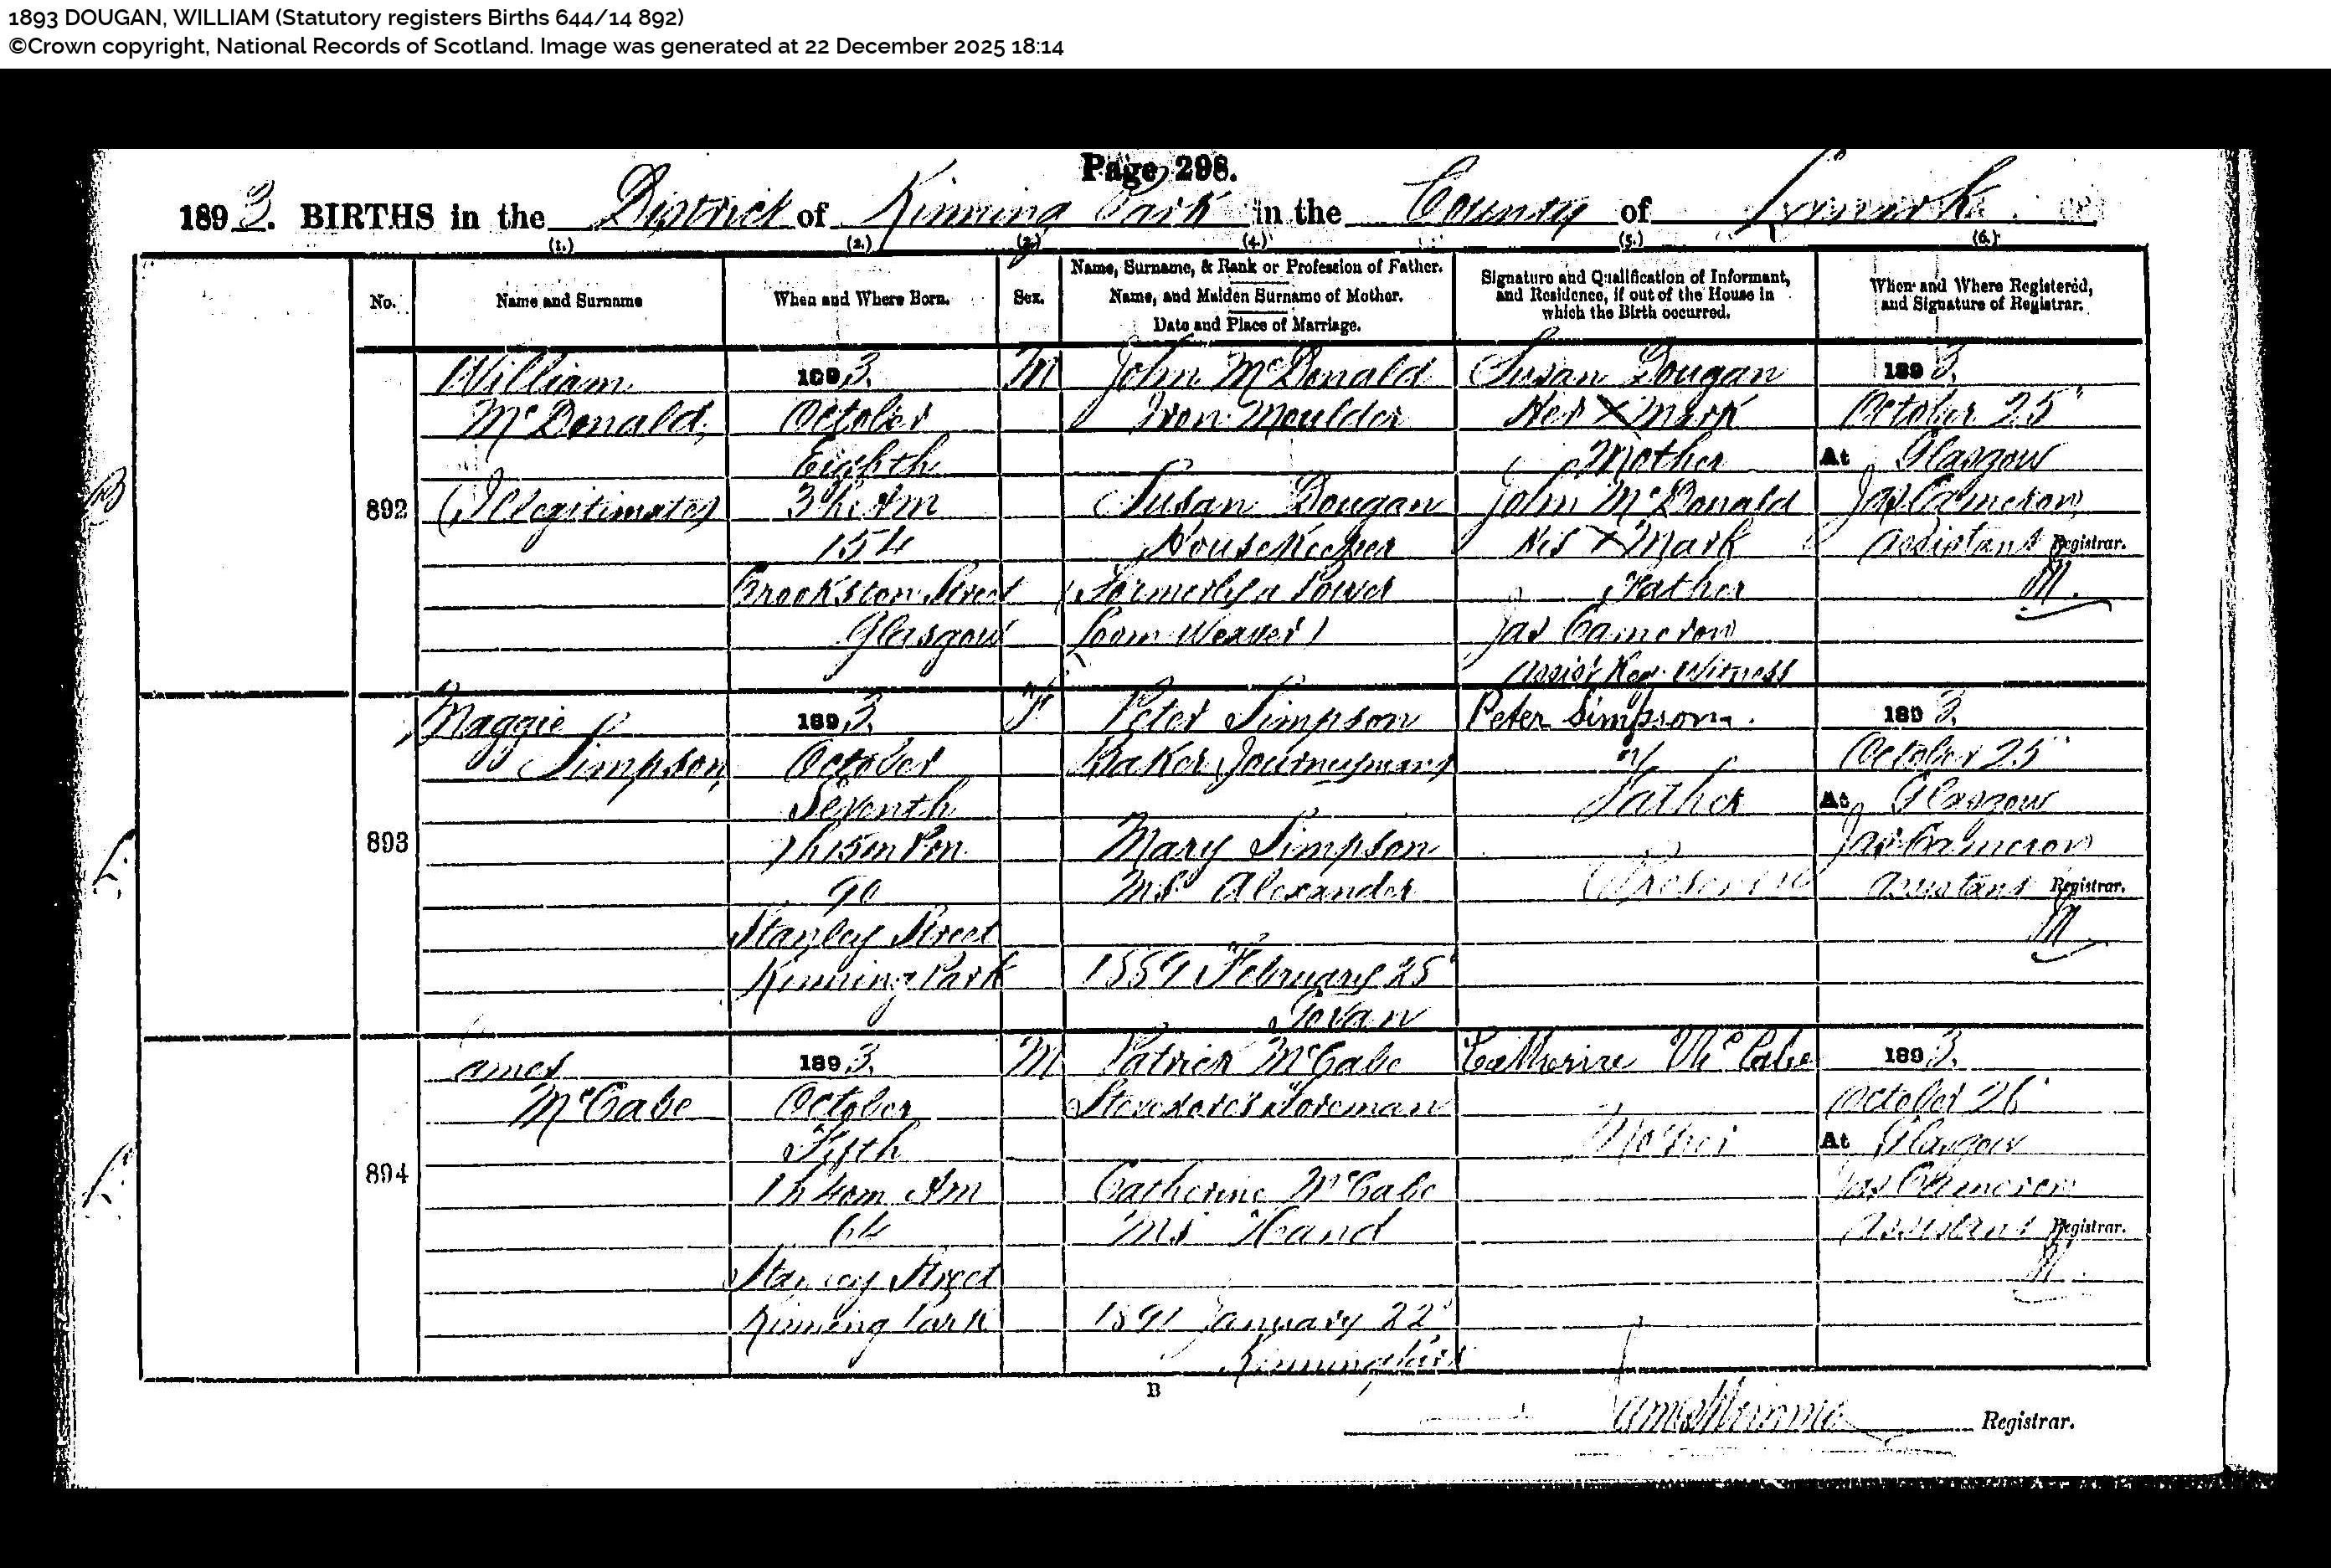 1893 DOUGAN, WILLIAM (Statutory registers Births 644/14 892)
©Crown copyright, National Records of Scotland. Image was generated at 22 December 2025 18:14
Page 298.
1893. BIRTHS in the District of Kinning Park in the County of Lanark
(1.) (2.) (3.) (4.) (5.) (6.)
No.
Name and Surname
When and Where Born.
Sex.
Name, Surname, & Rank or Profession of Father.
Name, and Maiden Surname of Mother.
Date and Place of Marriage.
Signature and Qualification of Informant,
and Residence, if out of the House in
which the Birth occurred.
When and Where Registered,
and Signature of Registrar.
B
892
William
McDonald,
(Illegitimate)
1893.
October
Eighth
3h AM
154
Crookston Street
Glasgow
M
John McDonald
Iron Moulder
Susan Dougan
Housekeeper
(Formerly a Power
Loom Weaver)
Susan Dougan
Her X Mark
Mother
John McDonald
His X Mark
Father
Jas Cameron
Assist Reg. Witness
1893.
October 25
At Glasgow
Jas Cameron
Assistant Registrar.
M.
L.
893
Maggie
Simpson,
1893.
October
Seventh
7h 15m PM
90
Stanley Street
Kinning Park
F
Peter Simpson
Baker (Journeyman)
Mary Simpson
MS Alexander
1889 February 25
Govan
Peter Simpson.
Father
(Present)
1893.
October 25
At Glasgow
Jas Cameron
Assistant Registrar.
M
L.
894
James
McCabe
1893.
October
Fifth
1h 40m AM
64
Stanley Street
Kinning Park
M
Patrick McCabe
Stevedore's Foreman
Catherine McCabe
MS Hand
1891 January 22
Kinning Park
Catherine McCabe
Mother
1893.
October 26
At Glasgow
Jas Cameron
Assistant Registrar.
M.
B
Registrar.